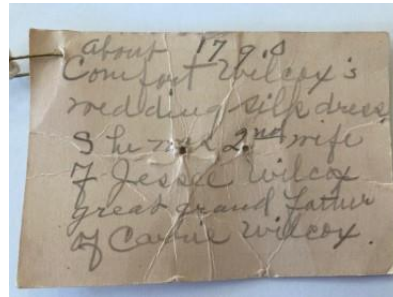 about 1790
Comfort Wilcox's
wedding silk dress
She was 2nd wife
of Jessee Wilcox
great grand father
of Carrie Wilcox.